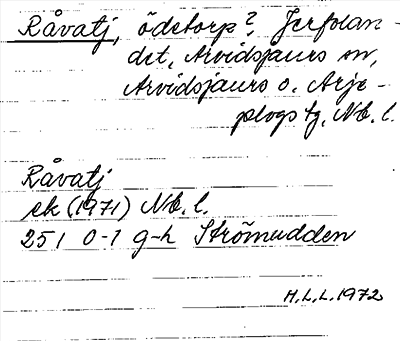 Råvatj, ödetorp?, Jerfolan-
det, Arvidsjaurs sn,
Arvidsjaurs o. Arje-
plogs tg, Nb. l.
Råvatj
ek (1971) Nb. l.
25 I 0-1 g-h Strömudden
H.L.L. 1972